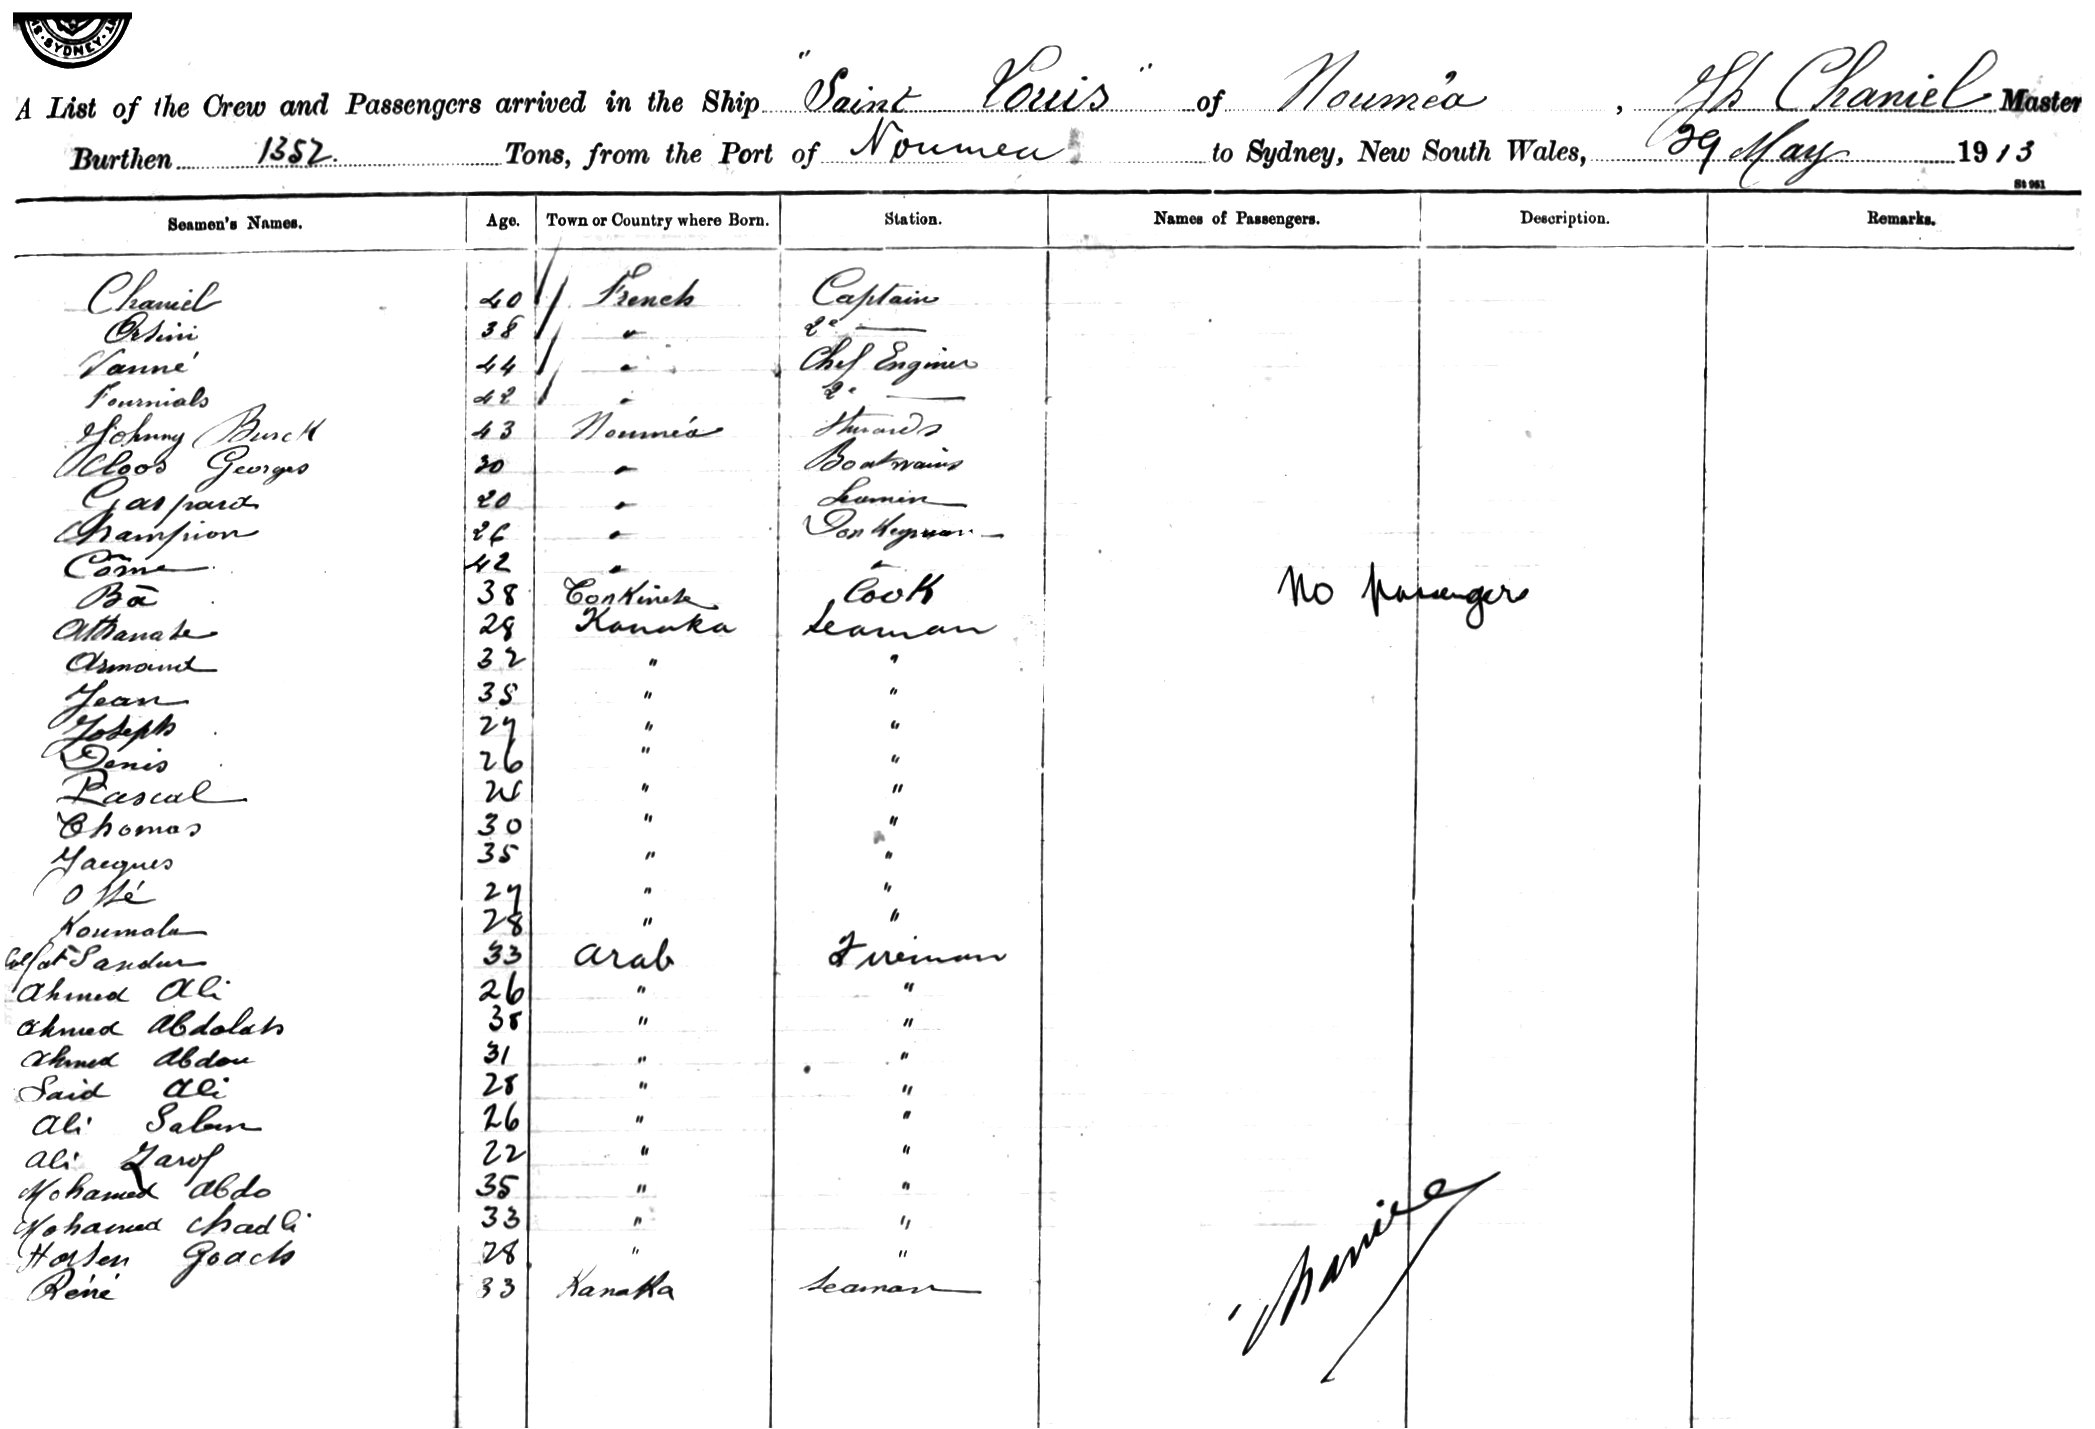 SYDNEY
A List of the Crew and Passengers arrived in the Ship "Saint Louis" of Nouméa, Th Chaniel Master
Burthen 1352 Tons, from the Port of Noumea to Sydney, New South Wales, 29 May 1913
St 961
Seamen's Names. Age. Town or Country where Born. Station. Names of Passengers. Description. Remarks.
Chaniel 40 French Captain
Orsini 38 " 2e —
Vanné 44 " Chef Enginer
Fournials 42 " 2e —
Johnny Burck 43 Nouméa Stuards
Cloos Georges 30 " Boatswains
Gaspard 20 " Seamen
Champion 26 " Donkeyman
Côme 42 " "
Ba 38 Tonkinese Cook No passengers
Athanase 28 Kanaka Seaman
Armand 32 " "
Jean 35 " "
Joseph 27 " "
Denis 26 " "
Pascal " "
Thomas 30 " "
Jacques 35 " "
27 " "
Koumala 28 " "
33 Arab Fireman
Ahmed Ali 26 " "
Ahmed Abdolah 38 " "
Ahmed Abdou 31 " "
Said Ali 28 " "
Ali Salem 26 " "
Ali Zarof 22 " "
Mohamed Abdo 35 " "
Mohamed Chadli 33 " "
28 " "
Réné 33 Kanaka Seaman
Chaniel